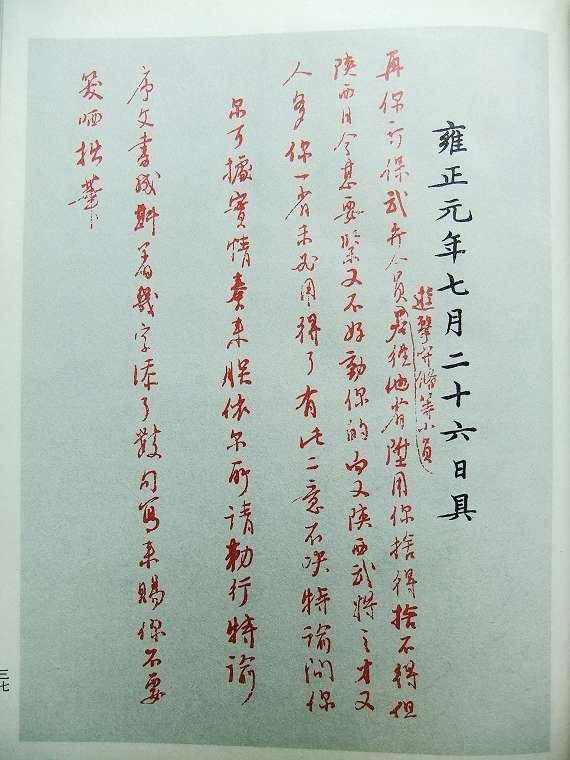 雍正元年七月二十六日具
遊擊守備等小員
再保可保武弁人員若從他省陞用你捨得捨不得但
陝西目今甚要緊又不好動你的向又陝西武將之才又
人多你一省未必用得了有此二意不決特諭問你
尔可據實情奏來朕依尔所請勅行特諭
序文書成斟着幾字添了數句寫來賜你不要
笑哂拙筆
三七